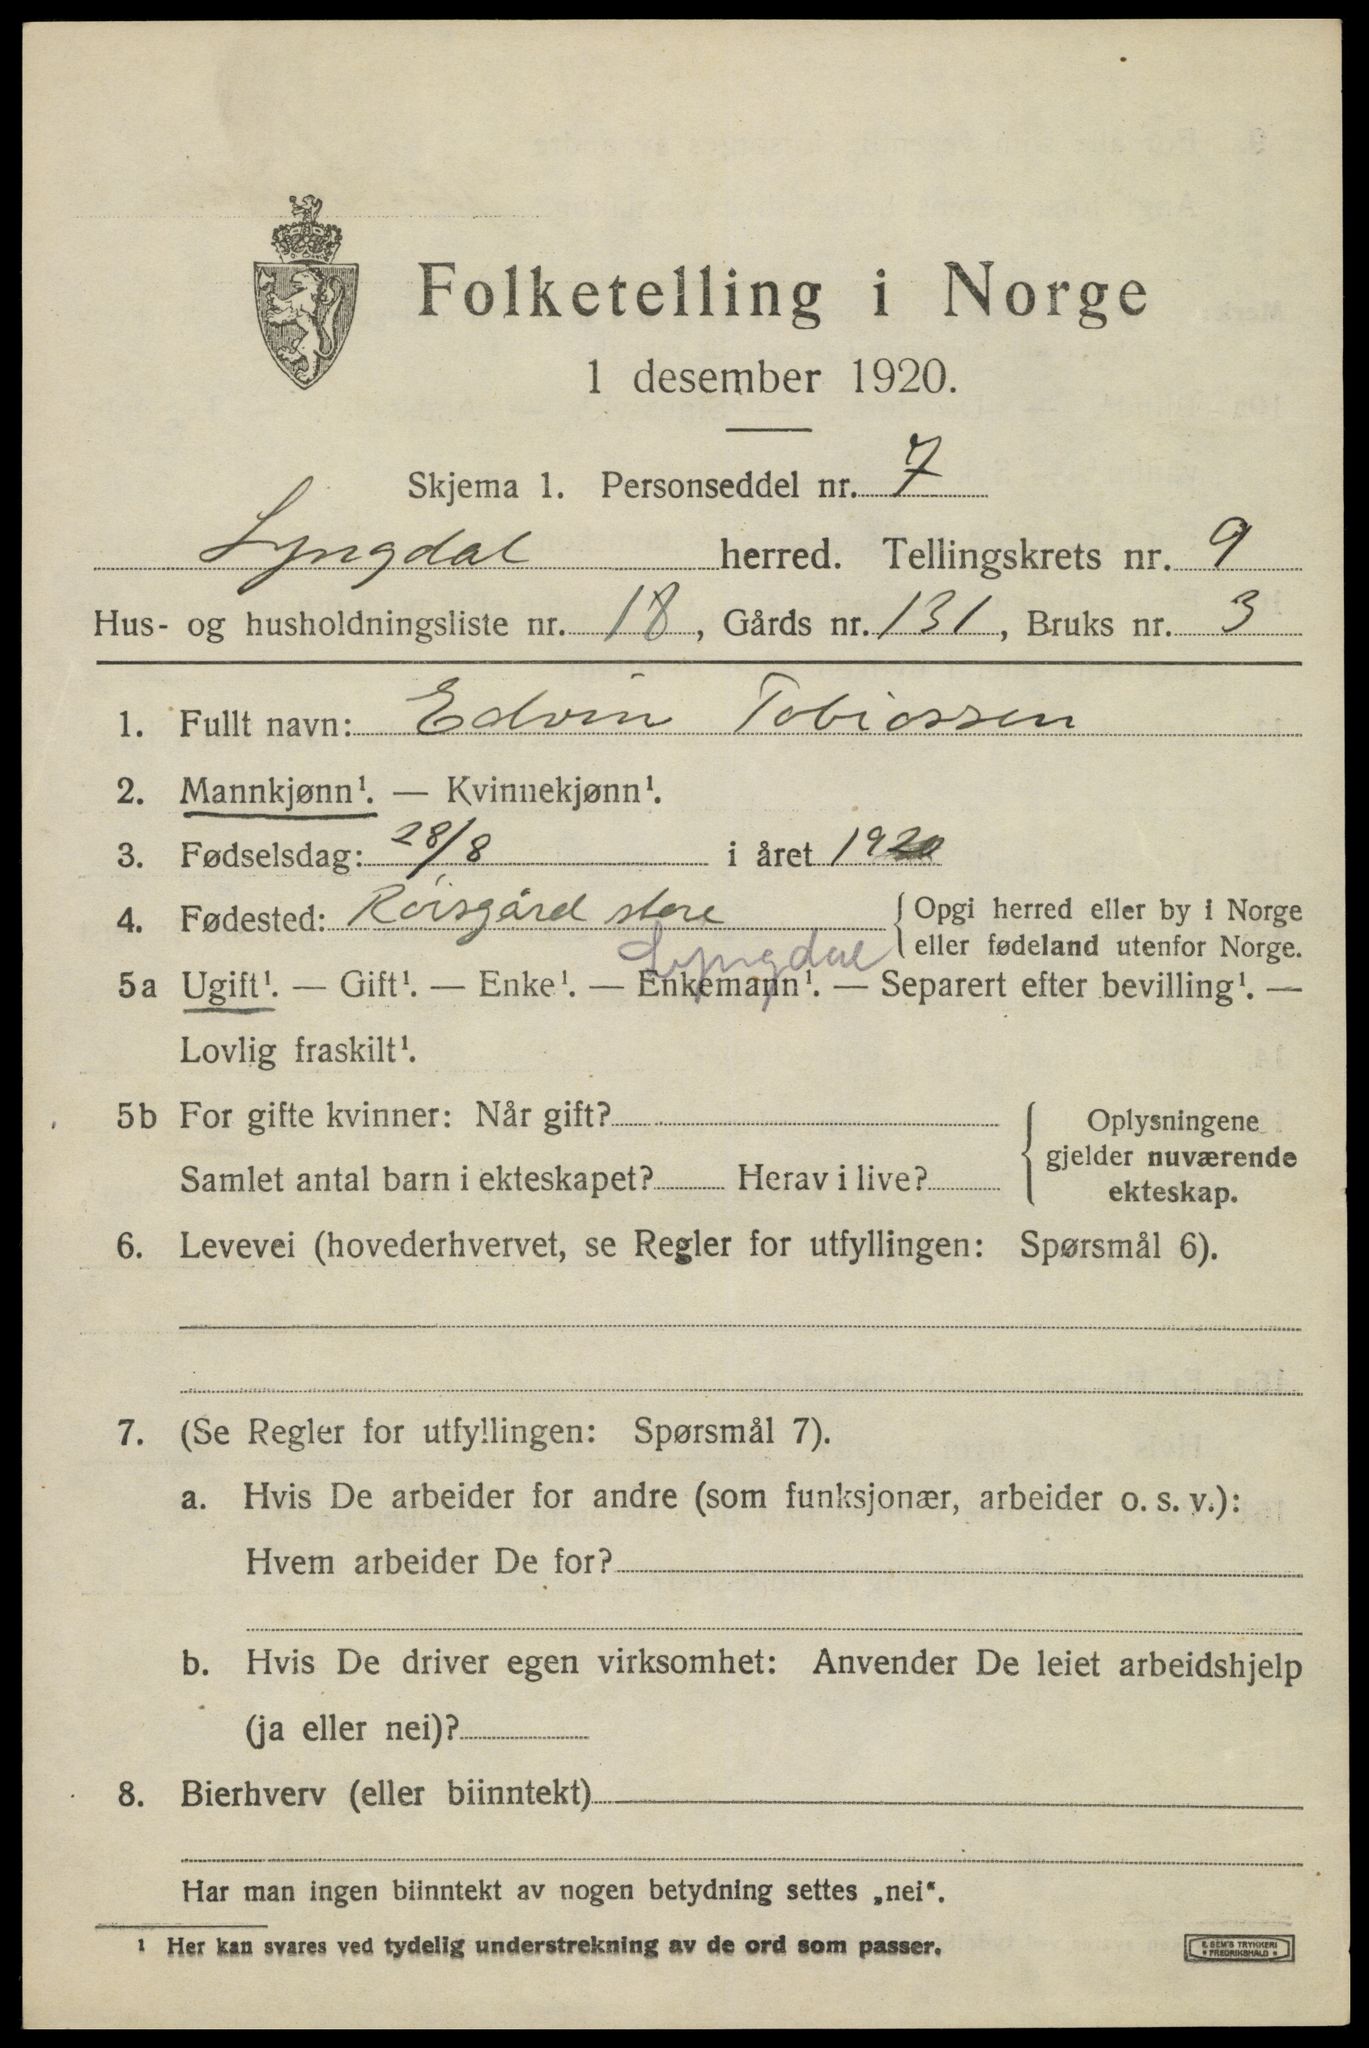 Folketelling i Norge
1 desember 1920.
Skjema 1. Personseddel nr. 7
Lyngdal herred. Tellingskrets nr. 9
Hus- og husholdningsliste nr. 18, Gårds nr. 131, Bruks nr. 3
1. Fullt navn: Edvin Tobiassen
2. Mannkjønn¹. — Kvinnekjønn¹.
3. Fødselsdag: 28/8 i året 1920
4. Fødested: Röisgård store { Opgi herred eller by i Norge
eller fødeland utenfor Norge.
Lyngdal
5a Ugift¹. — Gift¹. — Enke¹. — Enkemann¹. — Separert efter bevilling¹. —
Lovlig fraskilt¹.
5b For gifte kvinner: Når gift?
Samlet antal barn i ekteskapet? Herav i live?
{ Oplysningene
gjelder nuværende
ekteskap.
6. Levevei (hovederhvervet, se Regler for utfyllingen: Spørsmål 6).
7. (Se Regler for utfyllingen: Spørsmål 7).
a. Hvis De arbeider for andre (som funksjonær, arbeider o. s. v.):
Hvem arbeider De for?
b. Hvis De driver egen virksomhet: Anvender De leiet arbeidshjelp
(ja eller nei)?
8. Bierhverv (eller biinntekt)
Har man ingen biinntekt av nogen betydning settes „nei“.
¹ Her kan svares ved tydelig understrekning av de ord som passer.
E. SEM'S TRYKKERI
* FREDRIKSHALD *